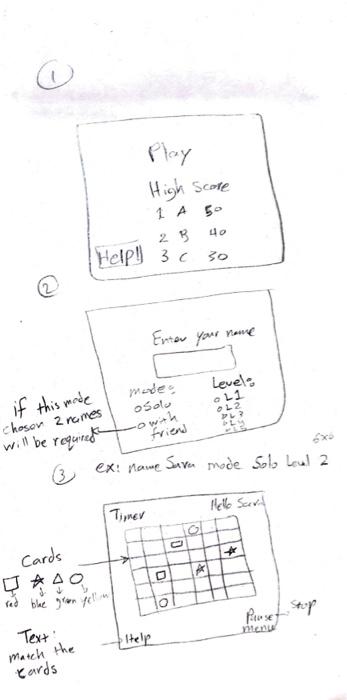 1
Play
High Score
1 A 50
2 B 40
3 C 30
Help!
2
Enter your name
mode:
o Solo
o with friend
Level:
o L1
o L2
o L3
o L4
o L5
if this mode
chosen 2 names
will be required
3
ex: name Sara mode Solo Level 2
6x6
Timer
Hello Sara!
Cards
red blue green yellow
Text:
match the
cards
Help
Pause
menu
Stop